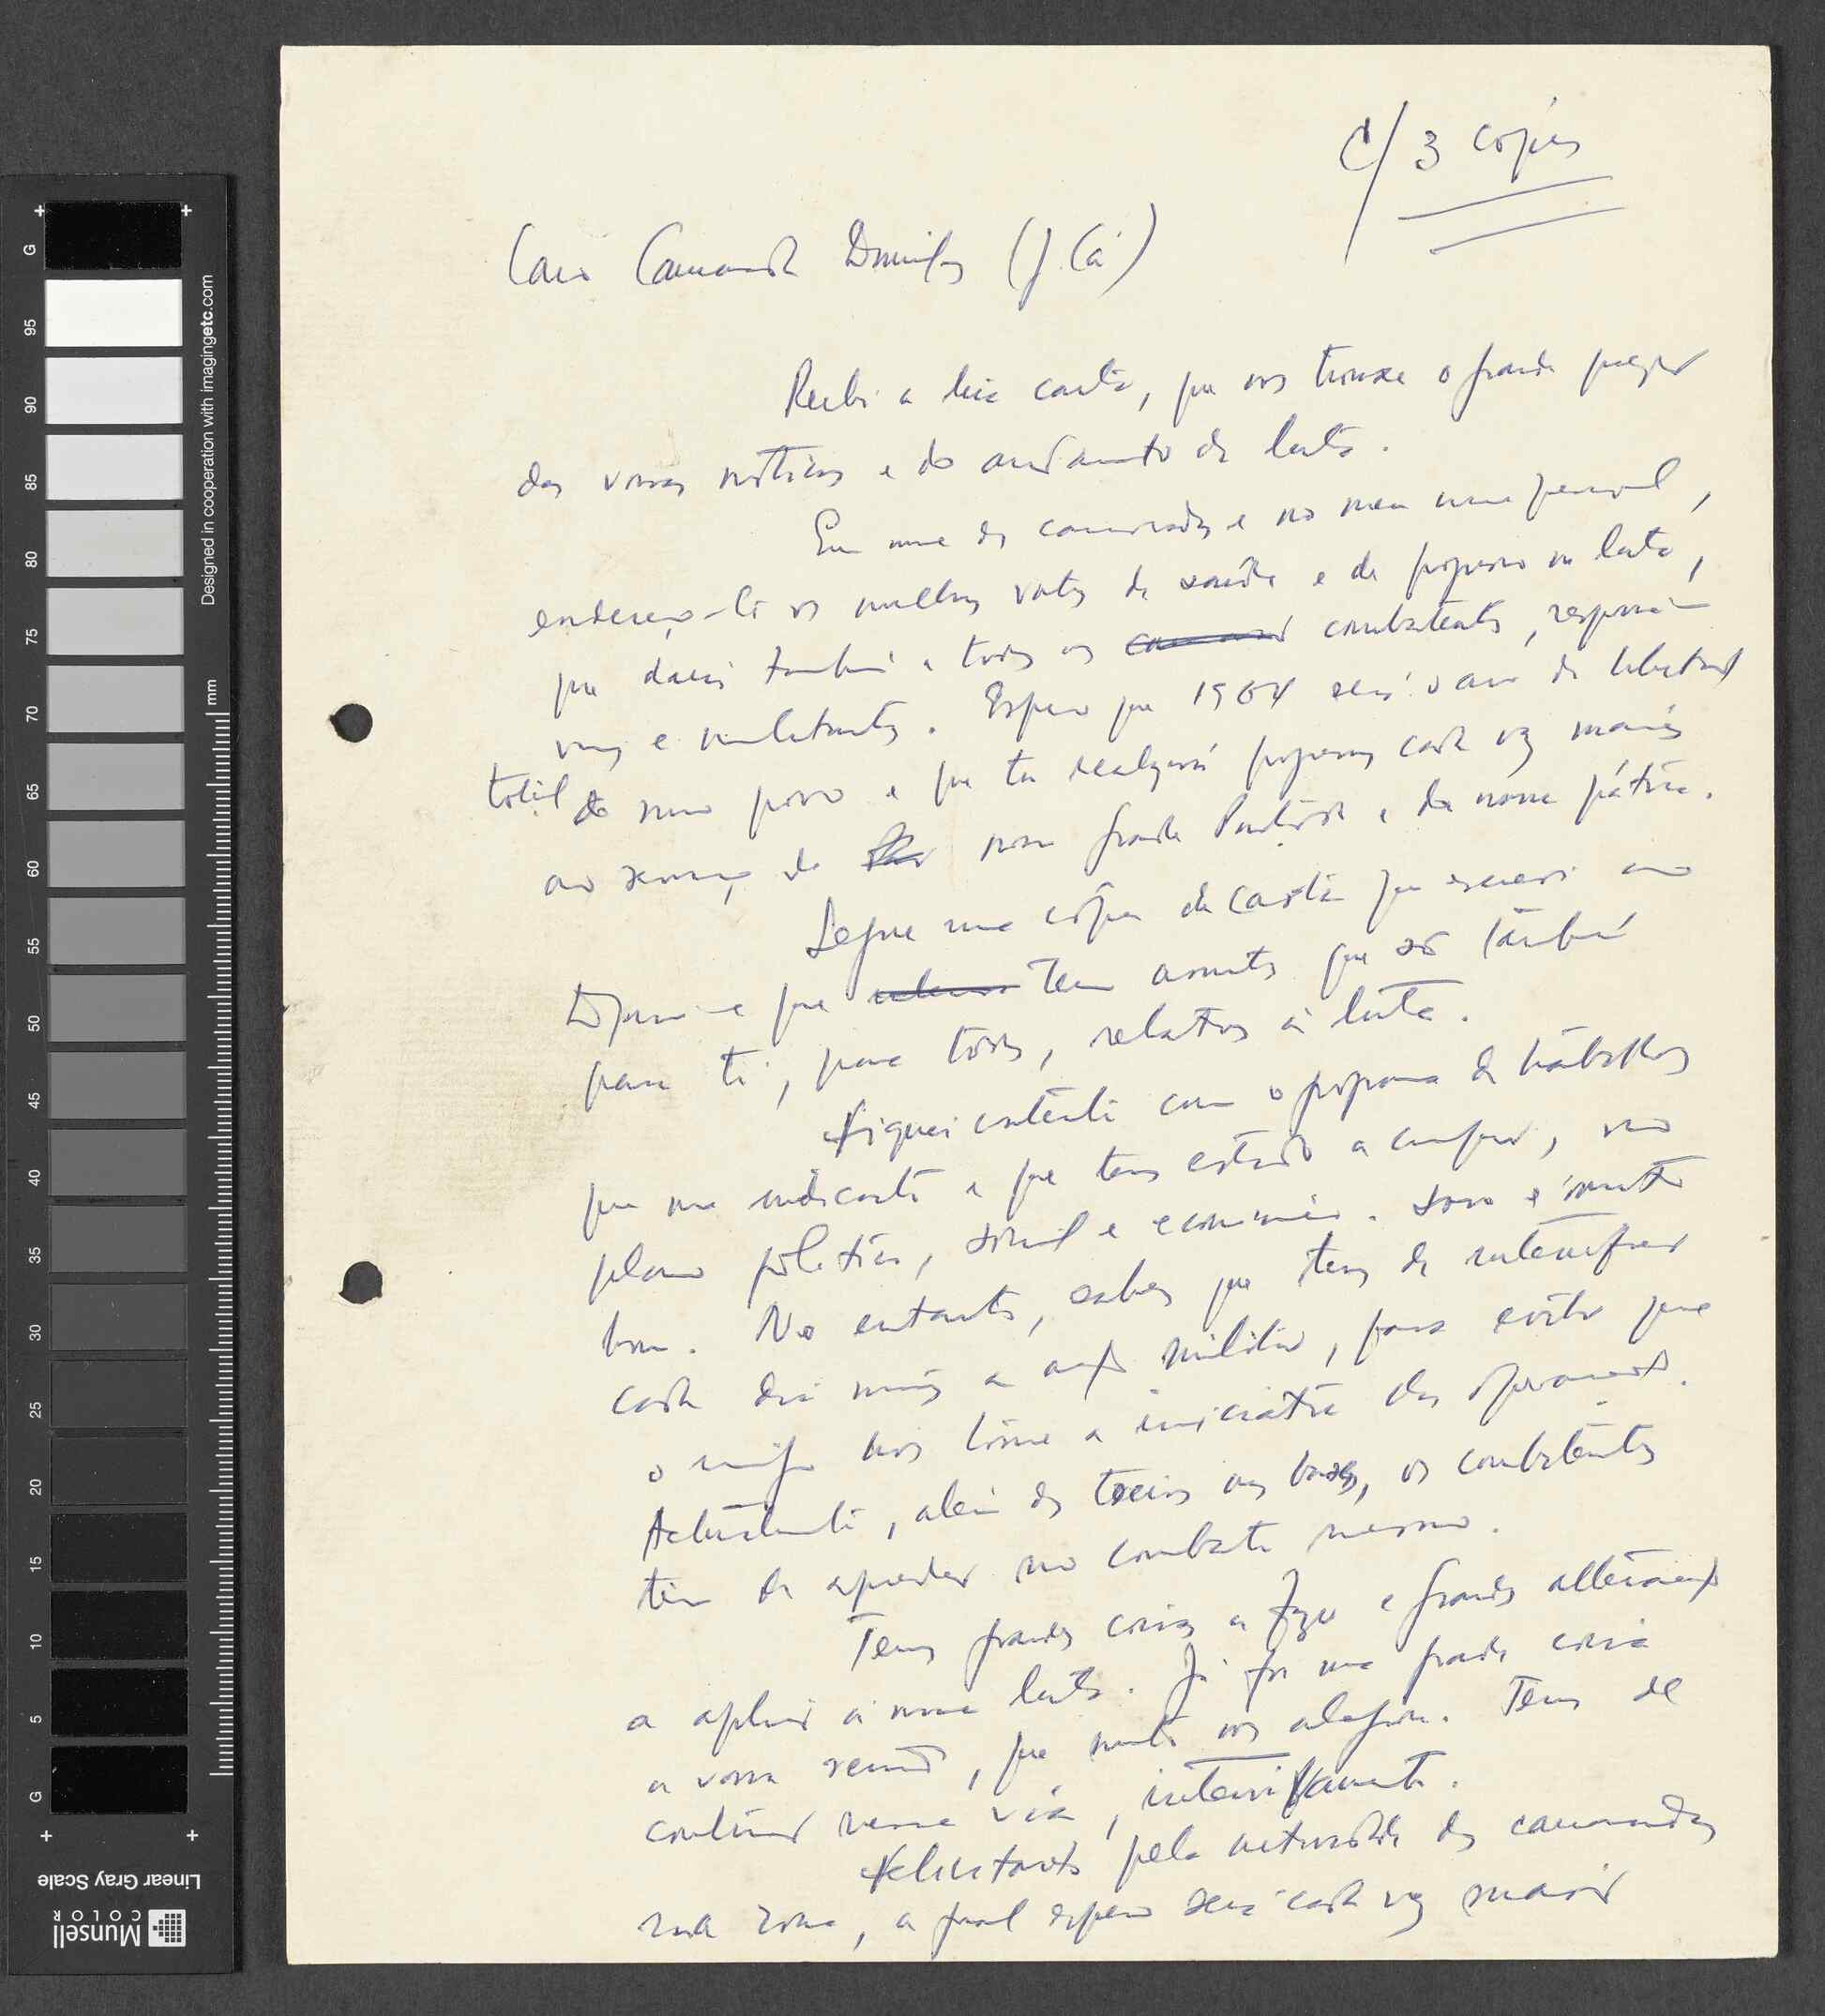 C/ 3 cópias
Caro Camarada Domingos (J. Cá)
Recebi a tua carta, que nos trouxe o grande prazer
das vossas notícias e do andamento da luta.
Em nome dos camaradas e no meu nome pessoal,
endereço-te os melhores votos de saúde e de progresso na luta,
que darás também a todos os combatentes, responsá-
veis e militantes. Espero que 1964 será o ano da libertação
total do nosso povo e que tu realizarás progressos cada vez maiores
ao serviço do nosso grande Partido e da nossa pátria.
Segue uma cópia da carta que escrevi ao
que tem assuntos que são também
para ti, para todos, relativos à luta.
Fiquei contente com o programa de trabalhos
que me indicaste e que tens estado a cumprir, no
plano político, social e económico. Isso é muito
bom. No entanto, sabes que temos de intensificar
cada dia mais a acção militar, para evitar que
o inimigo nos tome a iniciativa das operações.
Actualmente, além dos treinos nas bases, os combatentes
têm de aprender no combate mesmo.
Temos grandes coisas a fazer e grandes alterações
a aplicar à nossa luta. Já foi uma grande coisa
a vossa reunião, que muito nos alegrou. Temos de
continuar nessa via, intensificamente.
Felicitando pela actividade dos camaradas
na zona, a qual espero será cada vez maior
Designed in cooperation with imagingetc.com
mm
G 95 90 85 80 75 70 65 60 55 50 45 40 35 30 25 20 15 10 5 G
Linear Gray Scale
Munsell
COLOR